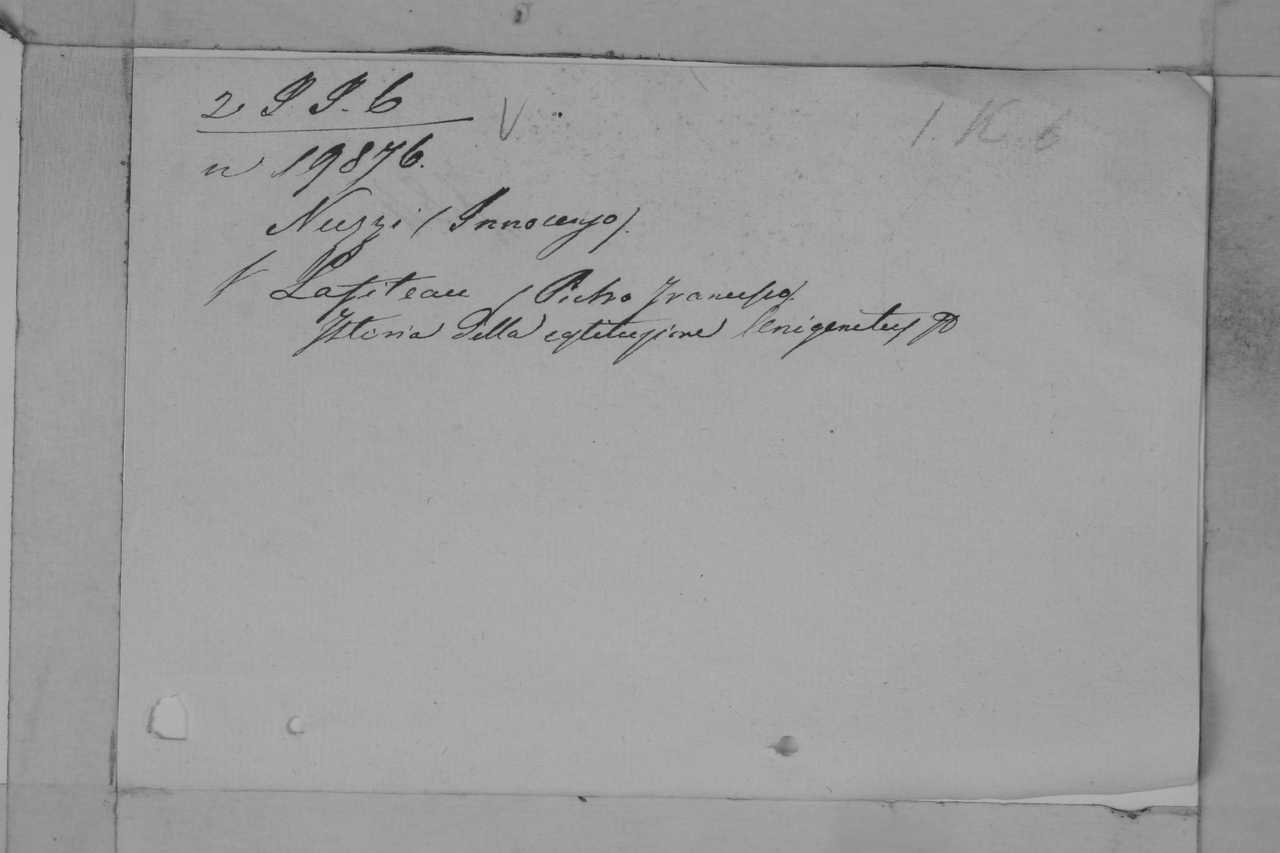 2 P P. 6 V. 1. K. 6
n 19876.
Nuzzi (Innocenzo).
V Lafiteau (Pietro Francesco).
Istoria della costituzione Unigenitus